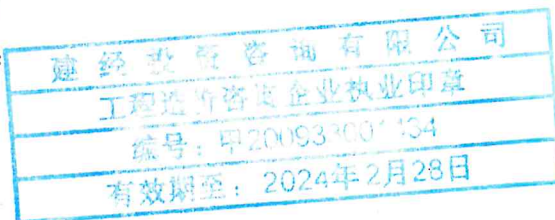 建经投资咨询有限公司
工程造价咨询企业执业印章
编号：甲20093300
有效期至：2024年2月28日